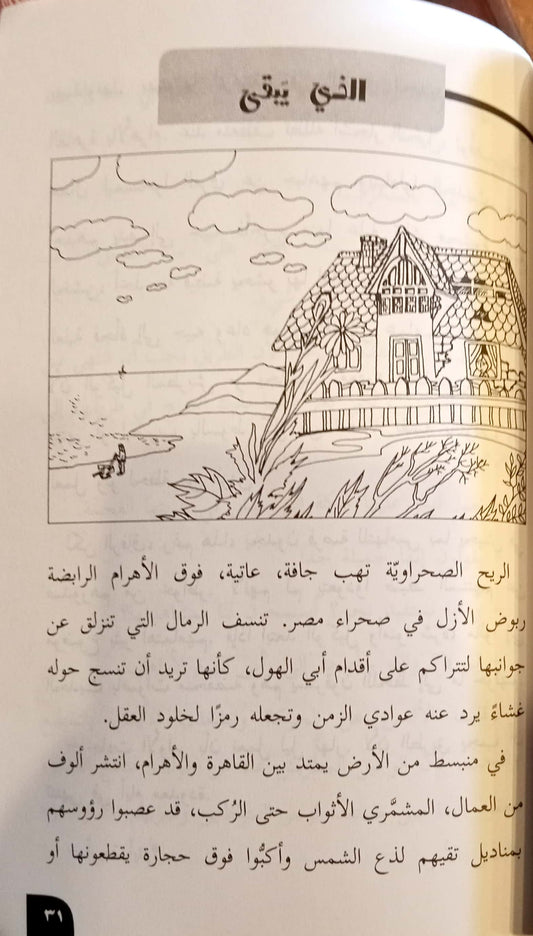 الذي يَبقى
الريح الصحراويّة تهب جافة، عاتية، فوق الأهرام الرابضة
ربوض الأزل في صحراء مصر. تنسف الرمال التي تنزلق عن
جوانبها لتتراكم على أقدام أبي الهول، كأنها تريد أن تنسج حوله
غشاءً يرد عنه عوادي الزمن وتجعله رمزًا لخلود العقل.
في منبسط من الأرض يمتد بين القاهرة والأهرام، انتشر ألوف
من العمال، المشمَّري الأثواب حتى الرُكب، قد عصبوا رؤوسهم
بمناديل تقيهم لذع الشمس وأكبُّوا فوق حجارة يقطعونها أو
٣١